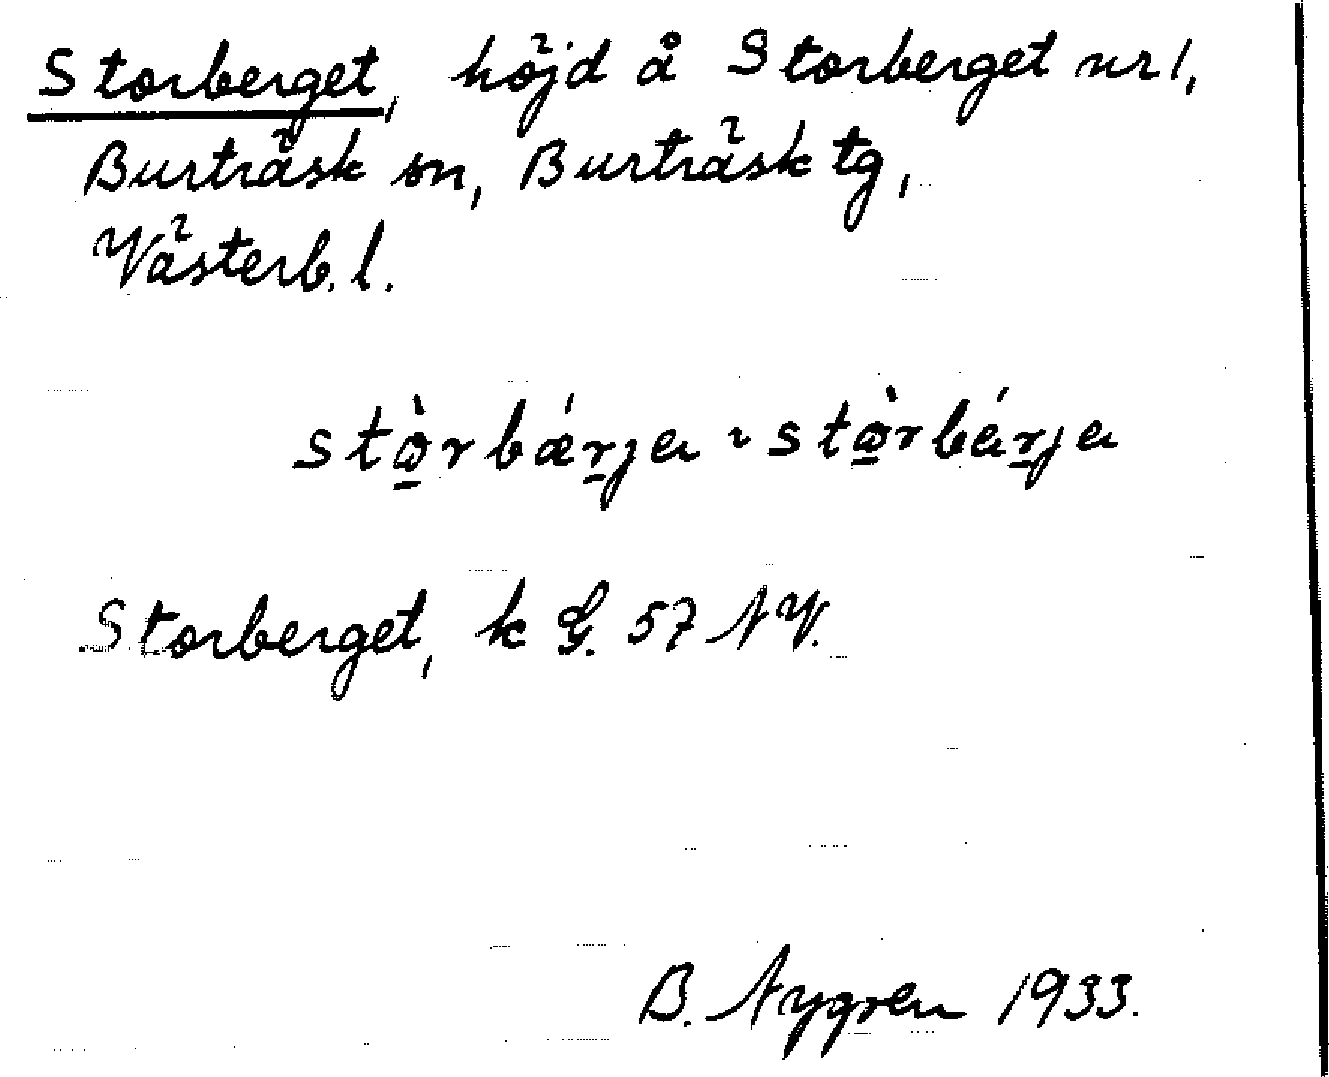 Storberget, höjd å Storberget nr 1,
Burträsk sn, Burträsk tg,
Västerb. l.
stò̠rbǽr̠ja ~ stò̠rbár̠ja
Storberget, k G. 57 NV.
B. Nygren 1933.